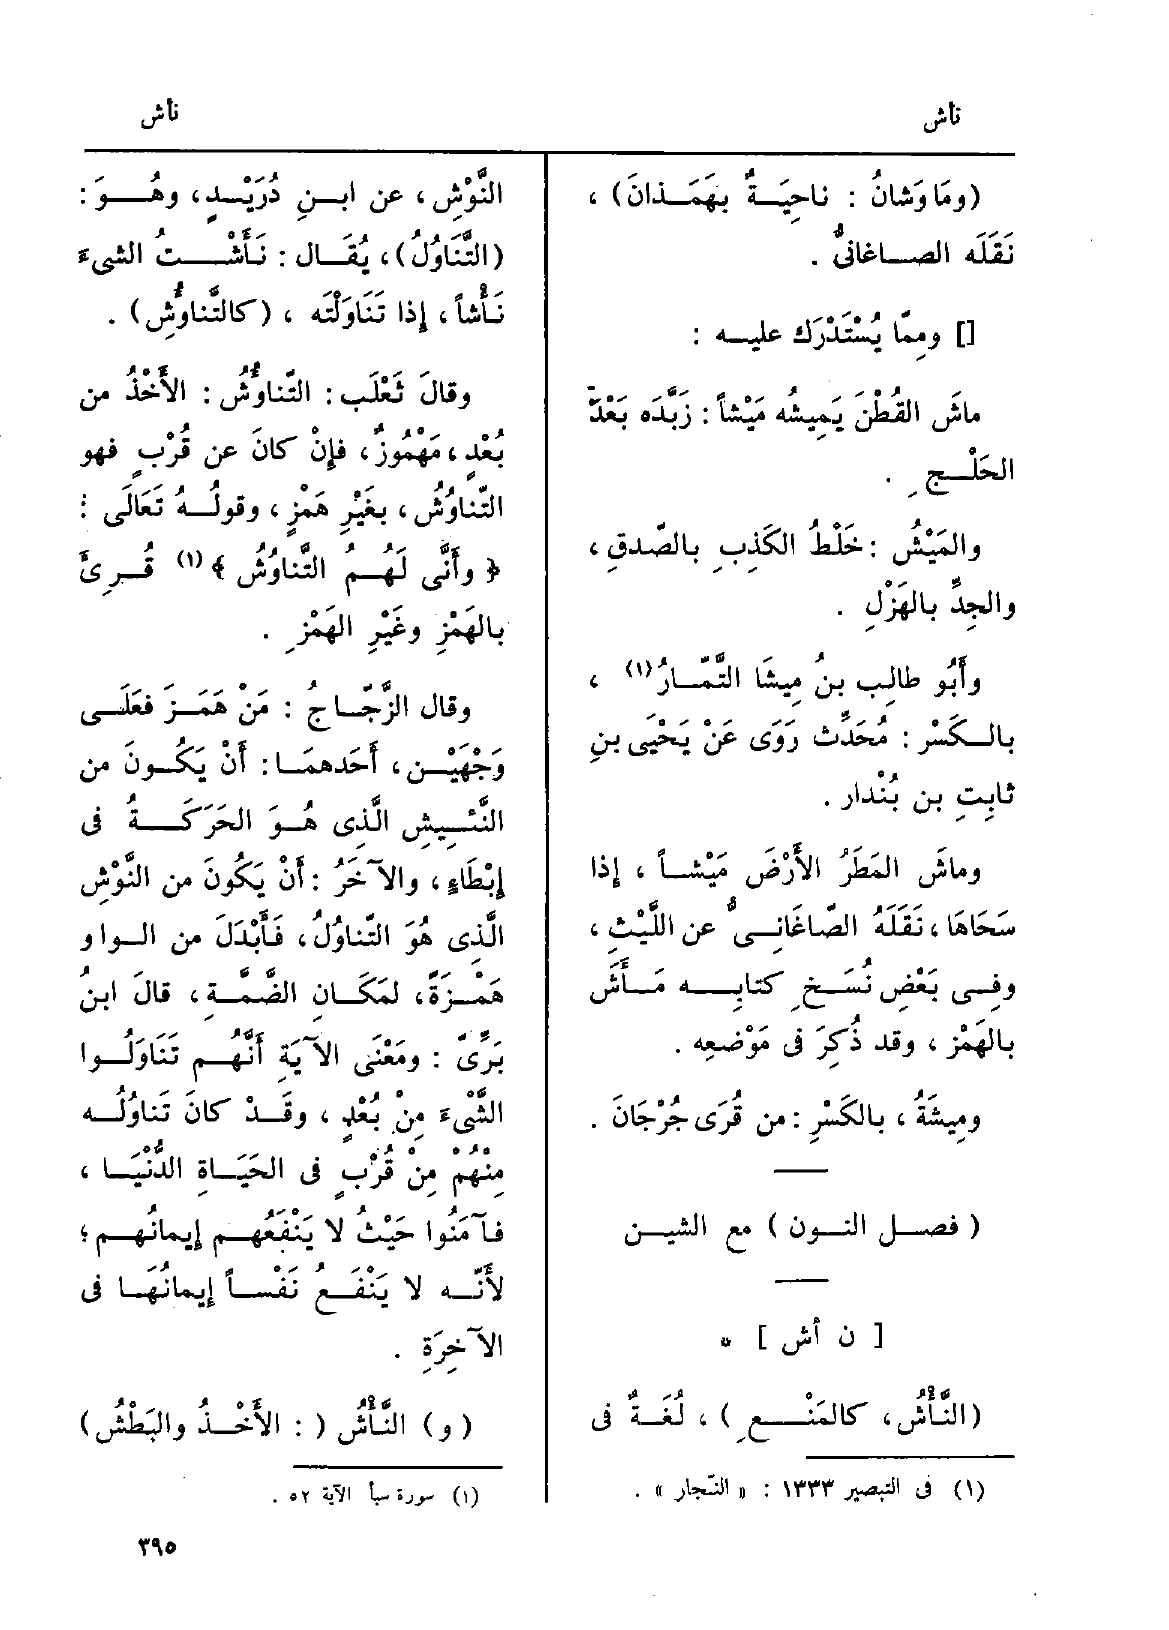 نأش
نأش
(ومَاوَشانُ : ناحِيَةٌ بِهَمَذانَ) ،
نَقَلَه الصاغانيُّ .
[] ومِمّا يُسْتَدْرَك عليه :
ماشَ القُطْنَ يَمِيشُه مَيْشاً : زَبَّدَه بَعْدَ
الحَلْجِ .
والمَيْشُ : خَلْطُ الكَذِبِ بالصِّدقِ ،
والجِدِّ بالهَزْلِ .
وأَبُو طالِب بنُ مِيشَا التَّمّارُ(١) ،
بالكَسْرِ : مُحَدِّث رَوَى عَنْ يَحْيَى بنِ
ثابِتِ بن بُنْدار .
وماشَ المَطَرُ الأَرْضَ مَيْشاً ، إِذا
سَحَاهَا ، نَقَلَهُ الصّاغَانِيُّ عن اللَّيْثِ ،
وفِي بَعْضِ نُسَخِ كتابِه مَأَشَ
بالهَمْزِ ، وقد ذُكِرَ فى مَوْضعِه .
ومِيشَةُ ، بالكَسْرِ : من قُرَى جُرْجَانَ .
( فصل النون ) مع الشين
[ ن أ ش ] *
(النَّأْشُ، كالمَنْعِ) ، لُغَةٌ فى
(١) فى التبصير ١٣٣٣ : « النّجار » .
النَّوْشِ ، عن ابنِ دُرَيْدٍ ، وهُوَ :
(التَّنَاوُلُ)، يُقَال : نَأَشْتُ الشىءَ
نَأْشاً ، إِذا تَنَاوَلْتَه ، (كالتَّناؤُشِ) .
وقالَ ثَعْلَب : التَّناؤُشُ : الأَخْذُ من
بُعْدٍ ، مَهْمُوزٌ ، فإِنْ كانَ عن قُرْبٍ فهو
التَّناوُشُ ، بغَيْرِ هَمْزٍ ، وقولُهُ تَعَالَى :
﴿ وأَنَّى لَهُمُ التَّناوُشُ ﴾(١) قُرِئَ
بالهَمْزِ وغَيْرِ الهَمْزِ .
وقال الزَّجّاجُ : مَنْ هَمَزَ فعَلَى
وَجْهَيْنِ ، أَحَدهمَا : أَنْ يَكُونَ من
النَّئِيشِ الَّذِى هُوَ الحَرَكَةُ فى
إِبْطَاءٍ ، والآخَرُ : أَنْ يَكُونَ من النَّوْشِ
الَّذِى هُوَ التَّناوُلُ ، فَأَبْدَلَ من الواو
هَمْزَةً ، لمَكَانِ الضَّمَّةِ ، قالَ ابنُ
بَرِّىّ : ومَعْنَى الآيَةِ أَنَّهُم تَنَاوَلُوا
الشَّىْءَ مِنْ بُعْدٍ ، وقَدْ كانَ تَناوُلُه
مِنْهُمْ مِنْ قُرْبٍ فى الحَيَاةِ الدُّنْيَا ،
فآمَنُوا حَيْثُ لا يَنْفَعُهم إِيمانُهم ؛
لأَنَّه لا يَنْفَعُ نَفْساً إِيمانُهَا فى
الآخِرَةِ .
( و ) النَّأْشُ ( : الأَخْذُ والبَطْشُ)
(١) سورة سبأ الآية ٥٢ .
٣٩٥